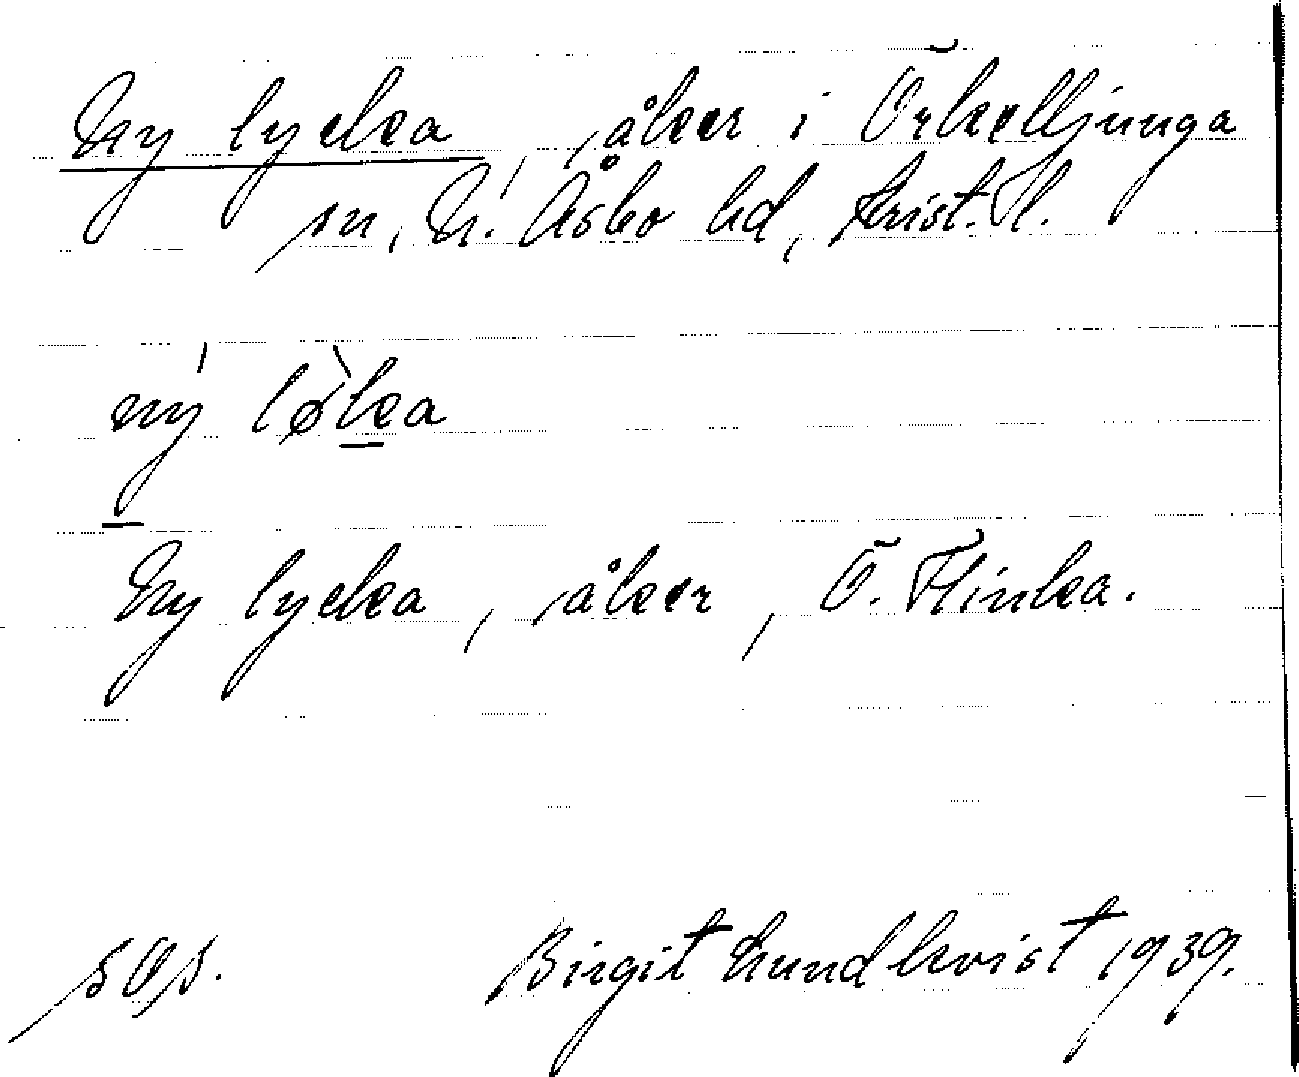 Ny lycka, åker i Örkelljunga
sn, N. Åsbo hd, Krist. l.
ný løka
Ny lycka, åker, Ö. Flinka.
sOs. Birgit Lundkvist 1939.